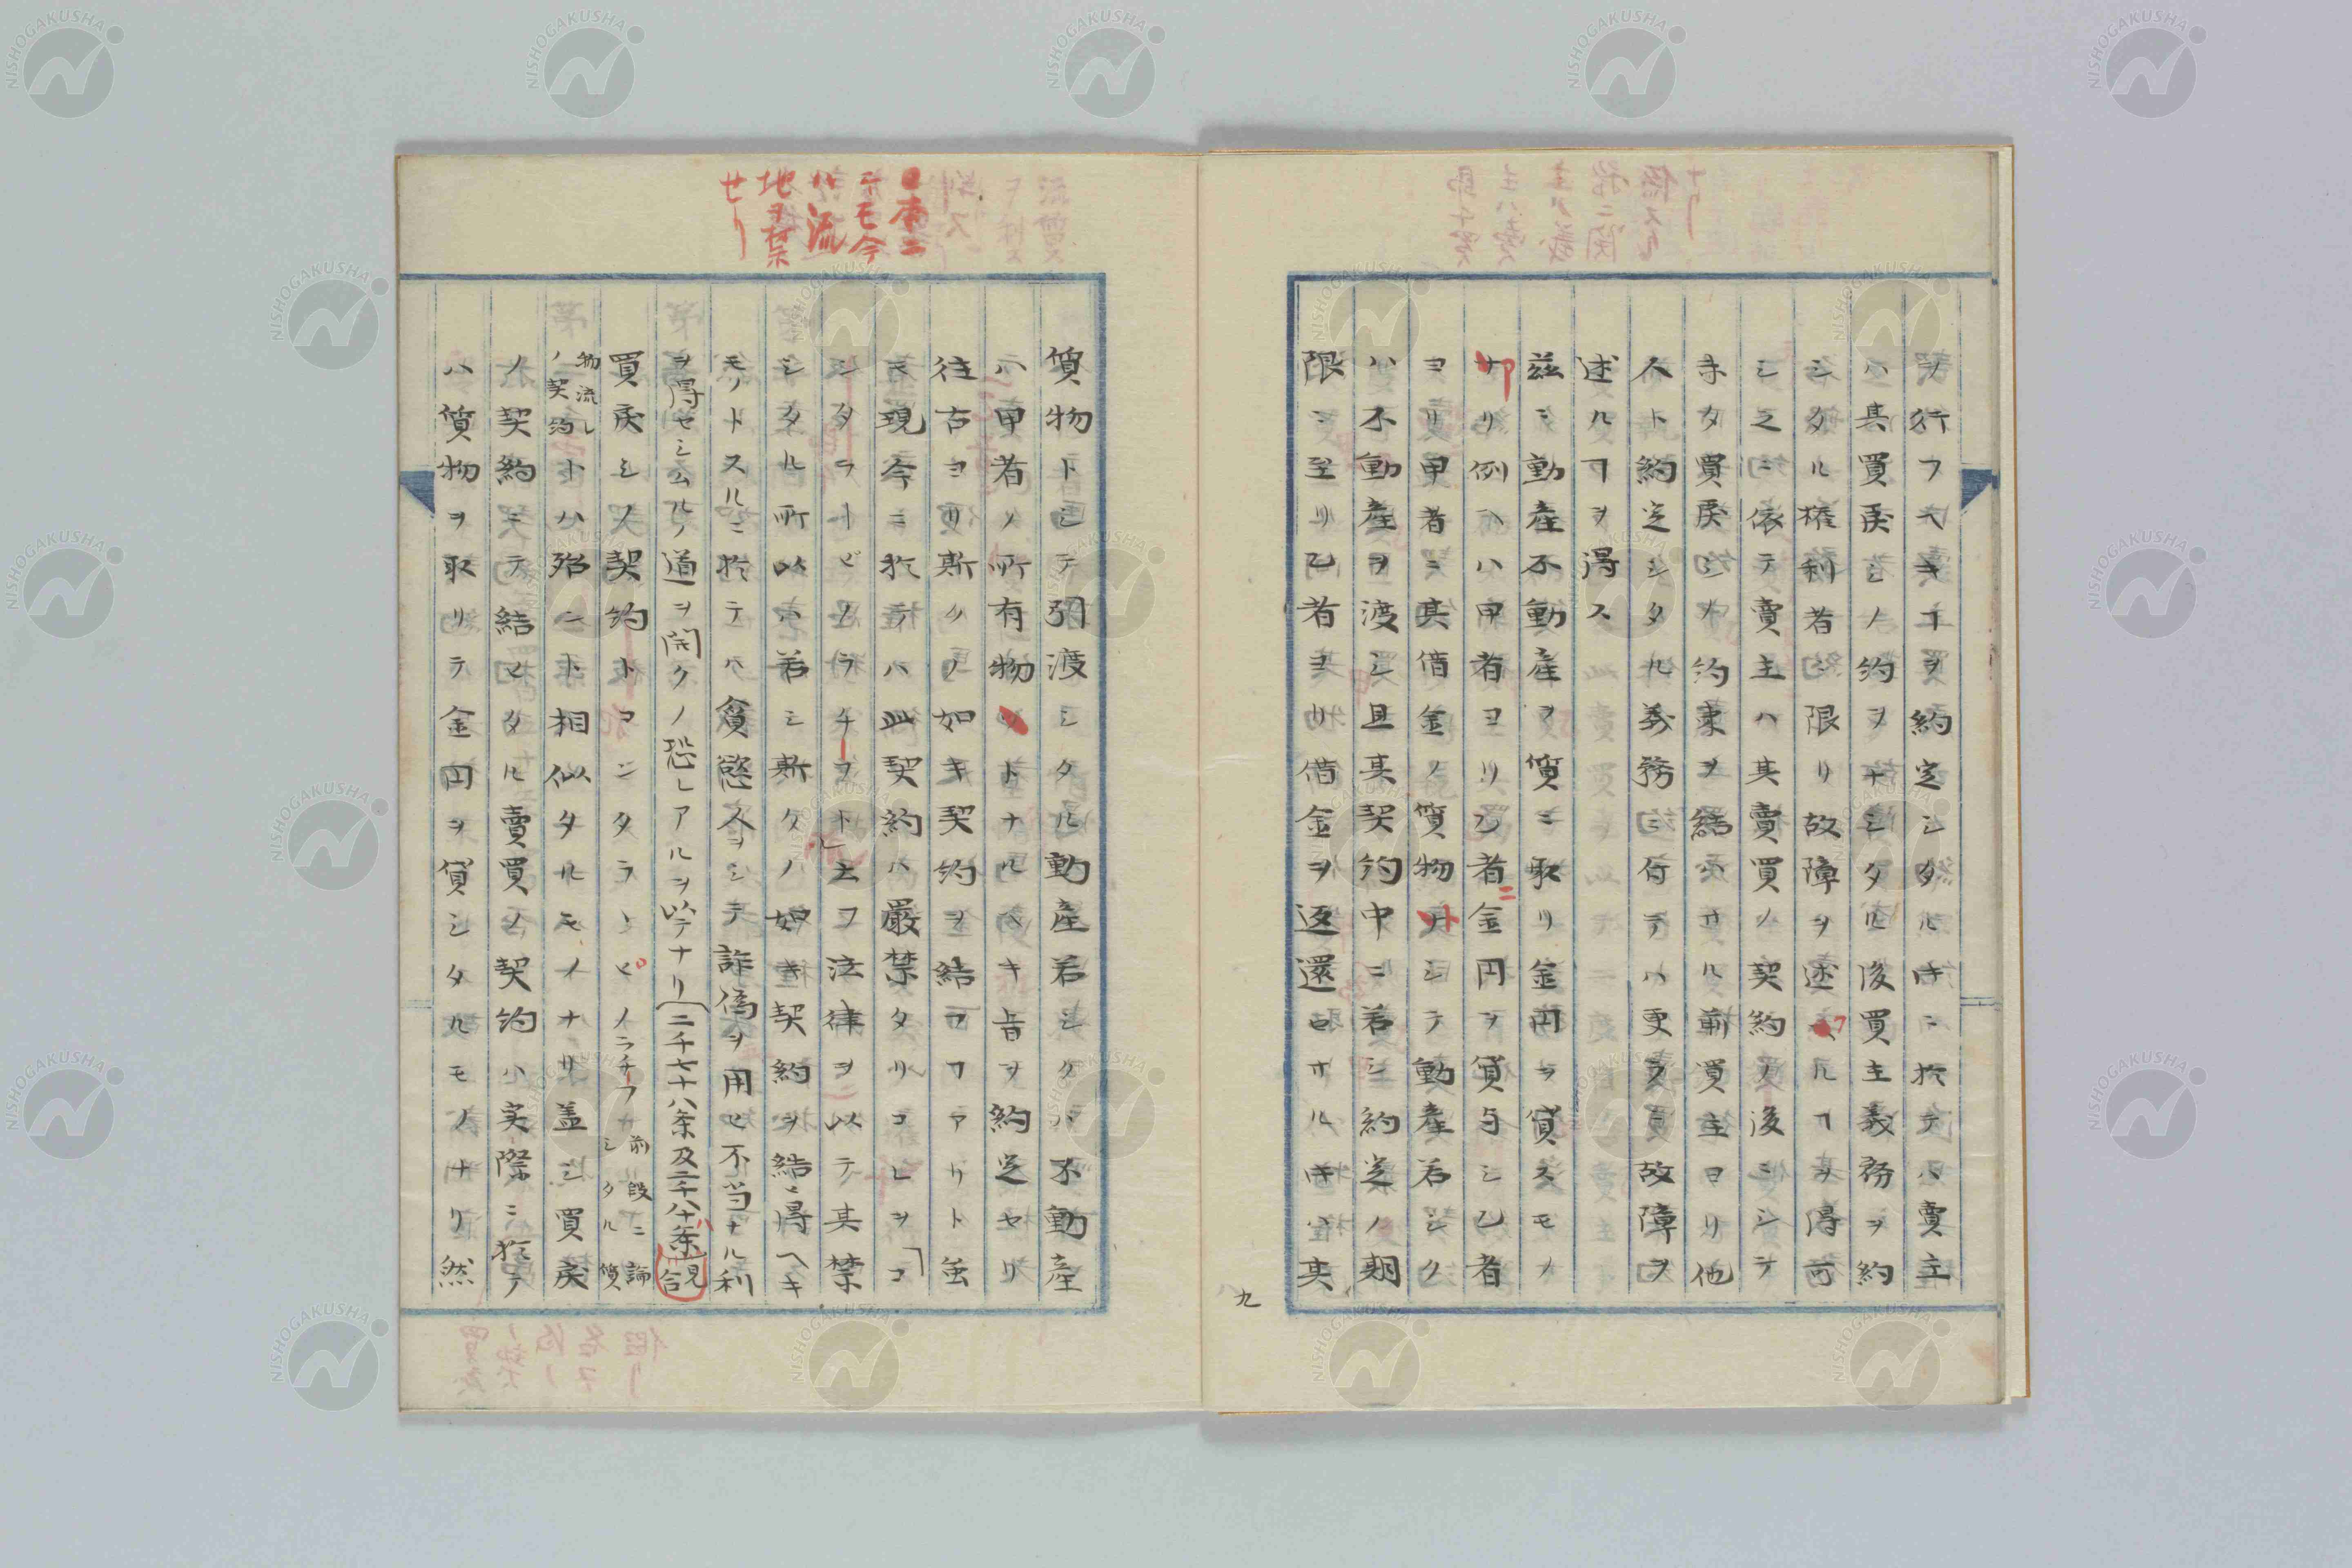 ヲ行フヘキヿヲ約定シタル時ニ於テハ賣主
ハ其買戻シノ約ヲナシタル後買主義務ヲ約
シタル権利者ニ限リ故障ヲ述フルヿヲ得可
シ之ニ依テ賣主ハ其賣買ノ契約ノ後ニシテ
未タ買戻シノ約束ヲ結ハサル前買主ヨリ他
人ト約定シタル義務ニ付テハ更ラ故障ヲ
述ルヿヲ得ス
茲ニ動産不動産ヲ質ニ取リ金円ヲ貸スモノ
アリ例ヘハ甲者ヨリ乙者ニ金円ヲ貸与シ乙者
ヨリ甲者ニ其借金ノ質物トシテ動産若シク
ハ不動産ヲ渡シ且其契約中ニ若シ約定ノ期
限ニ至リ乙者ヨリ借金ヲ返還セサル時ハ其
九
日本ニ
テモ今
ハ流
地ヲ禁
セリ
質物トシテ引渡シタル動産若シクハ不動産
ハ甲者ノ所有物トナルヘキ旨ヲ約定セリ
往古ヨリ斯クノ如キ契約ヲ結フヿアリト虽
モ現今ニ於テハ此契約ハ厳禁タリコレヲコ
ンタラートピノラチーフト云フ法律ヲ以テ其禁
シタル所以ハ若シ斯クノ如キ契約ヲ結ヒ得ヘキ
モノトスルニ於テハ貪慾人ヲシテ詐偽ヲ用ヒ不当ナル利
ヲ得セシムルノ道ヲ開クノ恐レアルヲ以テナリ（二千七十八条及二千八十八条見合
買戻シノ契約トコンタラートピノラチーフ前段ニ論シタル質
物流レノ契約トハ殆ント相似タルモノナリ盖シ買戻
ノ契約ニテ結ヒタル賣買ノ契約ハ実際ニ於テ
ハ質物ヲ取リテ金円ヲ貸シタルモノナリ然